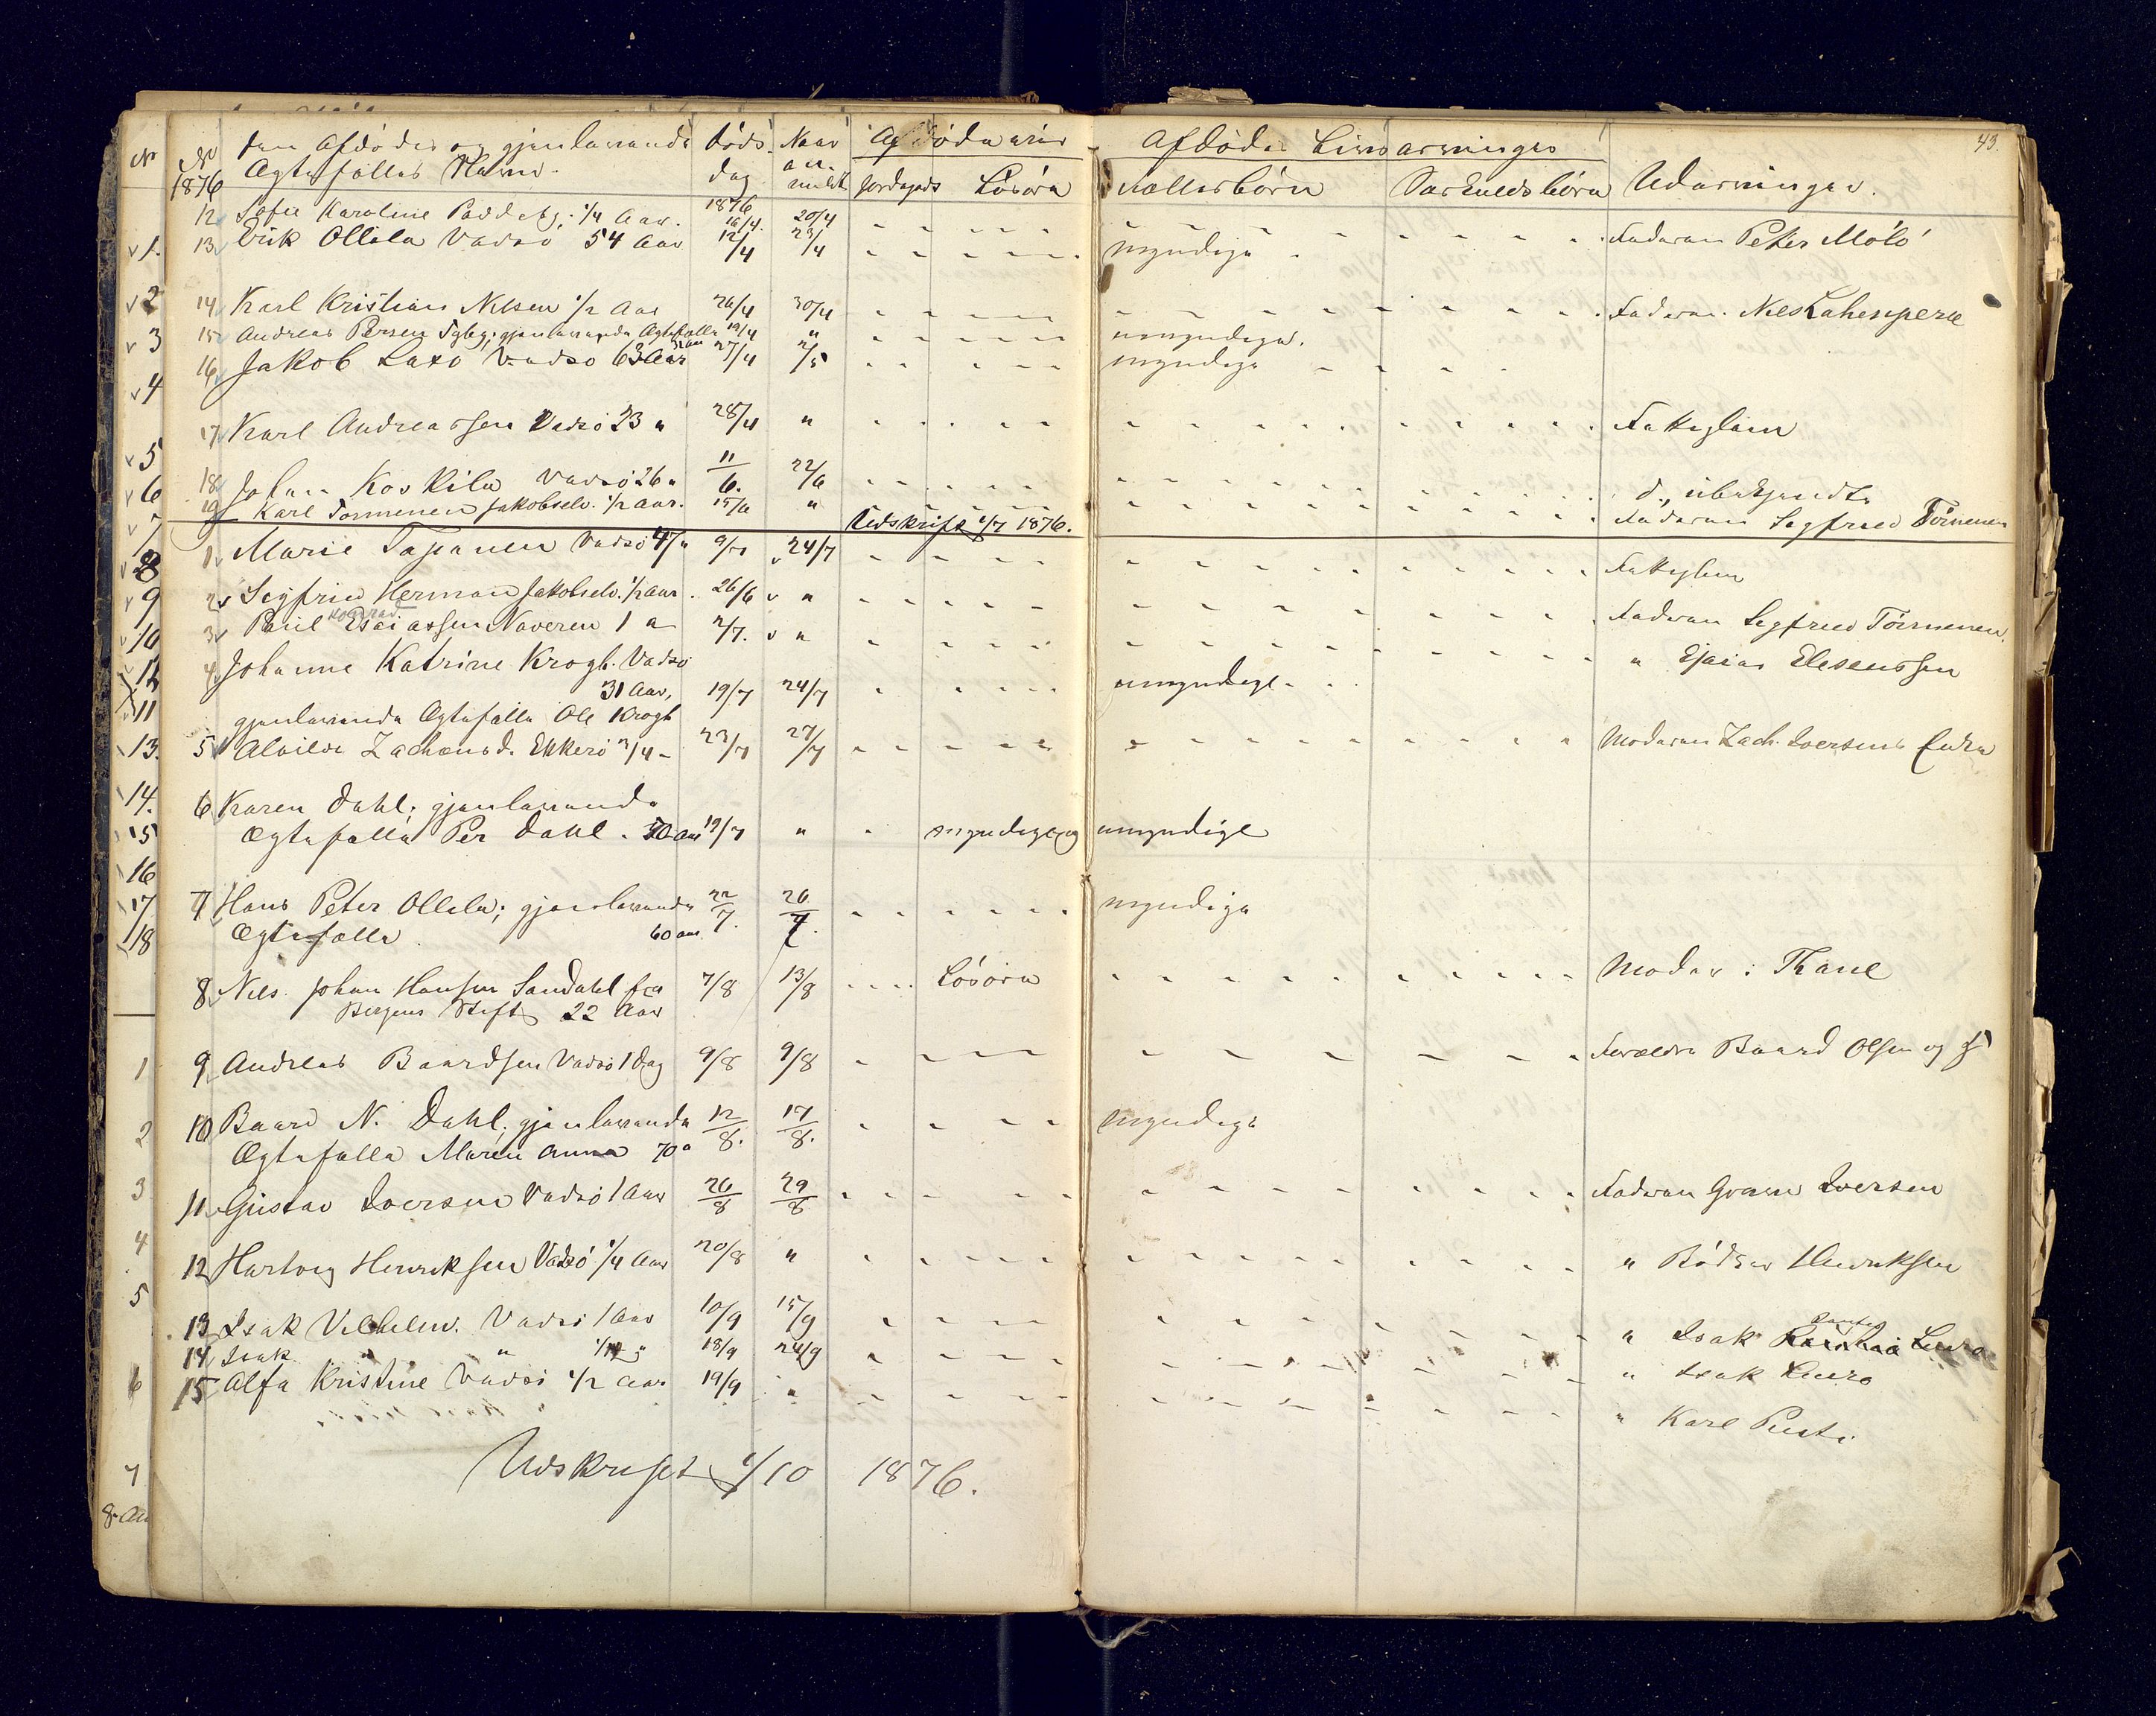 43.
No No Den Afdødes og gjenlevende Døds Naar Afdøde eier Afdødes Livsarvinger
1876 Ægtefælles Navn. dag anmeldt Jordegods Løsøre Kuldsbørn Særkuldsbørn Udarvinger.
12 Sofie Karoline Paddeby. 1/4 Aar. 1876 16/4. 20/4 - - - Faderen Peter Mölö
v 1. 13 Erik Ollila Vadsö 54 Aar 12/4 23/4 - - - myndige
v 2 14 Karl Kristian Nilsen 1/2 Aar 26/4 30/4 - - - Faderen Nils Lahenperæ
v 3 15 Andreas Persen gjenlevende Ægtefælle 19/4 " - - - umyndige.
v 4 16 Jakob Laxo Vadsö 63 Aar 27/4 2/5 - - - myndige
17 Karl Andreassen Vadsö 23 " 28/4 " - - - Fattiglem
v 5 18 Johan Koskila Vadsö 26 " 11/6. 22/6 - - - d., ubekjendte
v 6 19 Karl Tormenen Jakobselv. 1/2 Aar. 15/6 " - - - Faderen Segfried Törmenen
Udskrift 1/7 1876.
v 7
v 8 1 Marie Tapanen Vadsö 47 " 9/7 24/7 - - - Fattiglem
v 9 2 Segfried Herman Jakobselv. 1/2 Aar. 26/6 v " - - - Faderen Segfried Törmenen.
Konrad
v 10 3 Paul Esaiassen Naveren 1 " 2/7. v " - - - " Esaias Elesenssen
12 4 Johanne Katrine Krogh. Vadsö
11 31 Aar, 19/7 24/7 - - - umyndige
gjenlevende Ægtefælle Ole Krogh
13. 5 Alvilde Zachæusd. Ekkerö 3/4 - 23/7 27/7 - - - Moderen Zach. Iversens Enke
14. 6 Karen Dahl; gjenlevende
15 Ægtefælle Per Dahl. 50 Aar 19/7 " - myndige og umyndige
16
17 7 Hans Peter Ollila; gjenlevende 22/7. 26/7. - - - myndige
18 Ægtefælle 60 Aar
8 Nils Johan Hansen Sandahl fra 7/8 13/8 - Løsøre - - - Moder i Thrane
Bergens Stift 22 Aar
1 9 Andreas Baardsen Vadsö 1 Dag 9/8 9/8 - - - Forældre Baard Olsen og H
2 10 Baard N. Dahl; gjenlevende 12/8. 17/8. - - - myndige
Ægtefælle Maren Anna 70 "
3 11 Gustav Iversen Vadsö 1 Aar 26/8 29/8 - - - Faderen Iversen
4 12 Hartvig Henriksen Vadsö 1/4 Aar 20/8 " - - - " Bödker Henriksen
5 13 Isak Vilhelm. Vadsö 1 Aar 10/9 15/9 - - - " Isak Lauro
14 Isak " " " 18/9 24/9 - - - " Isak Lauro
6 15 Alfa Kristine Vadsö 1/2 Aar 19/9 " - - - " Karl Pusti
7 Udskrift 1/10 1876.
8.